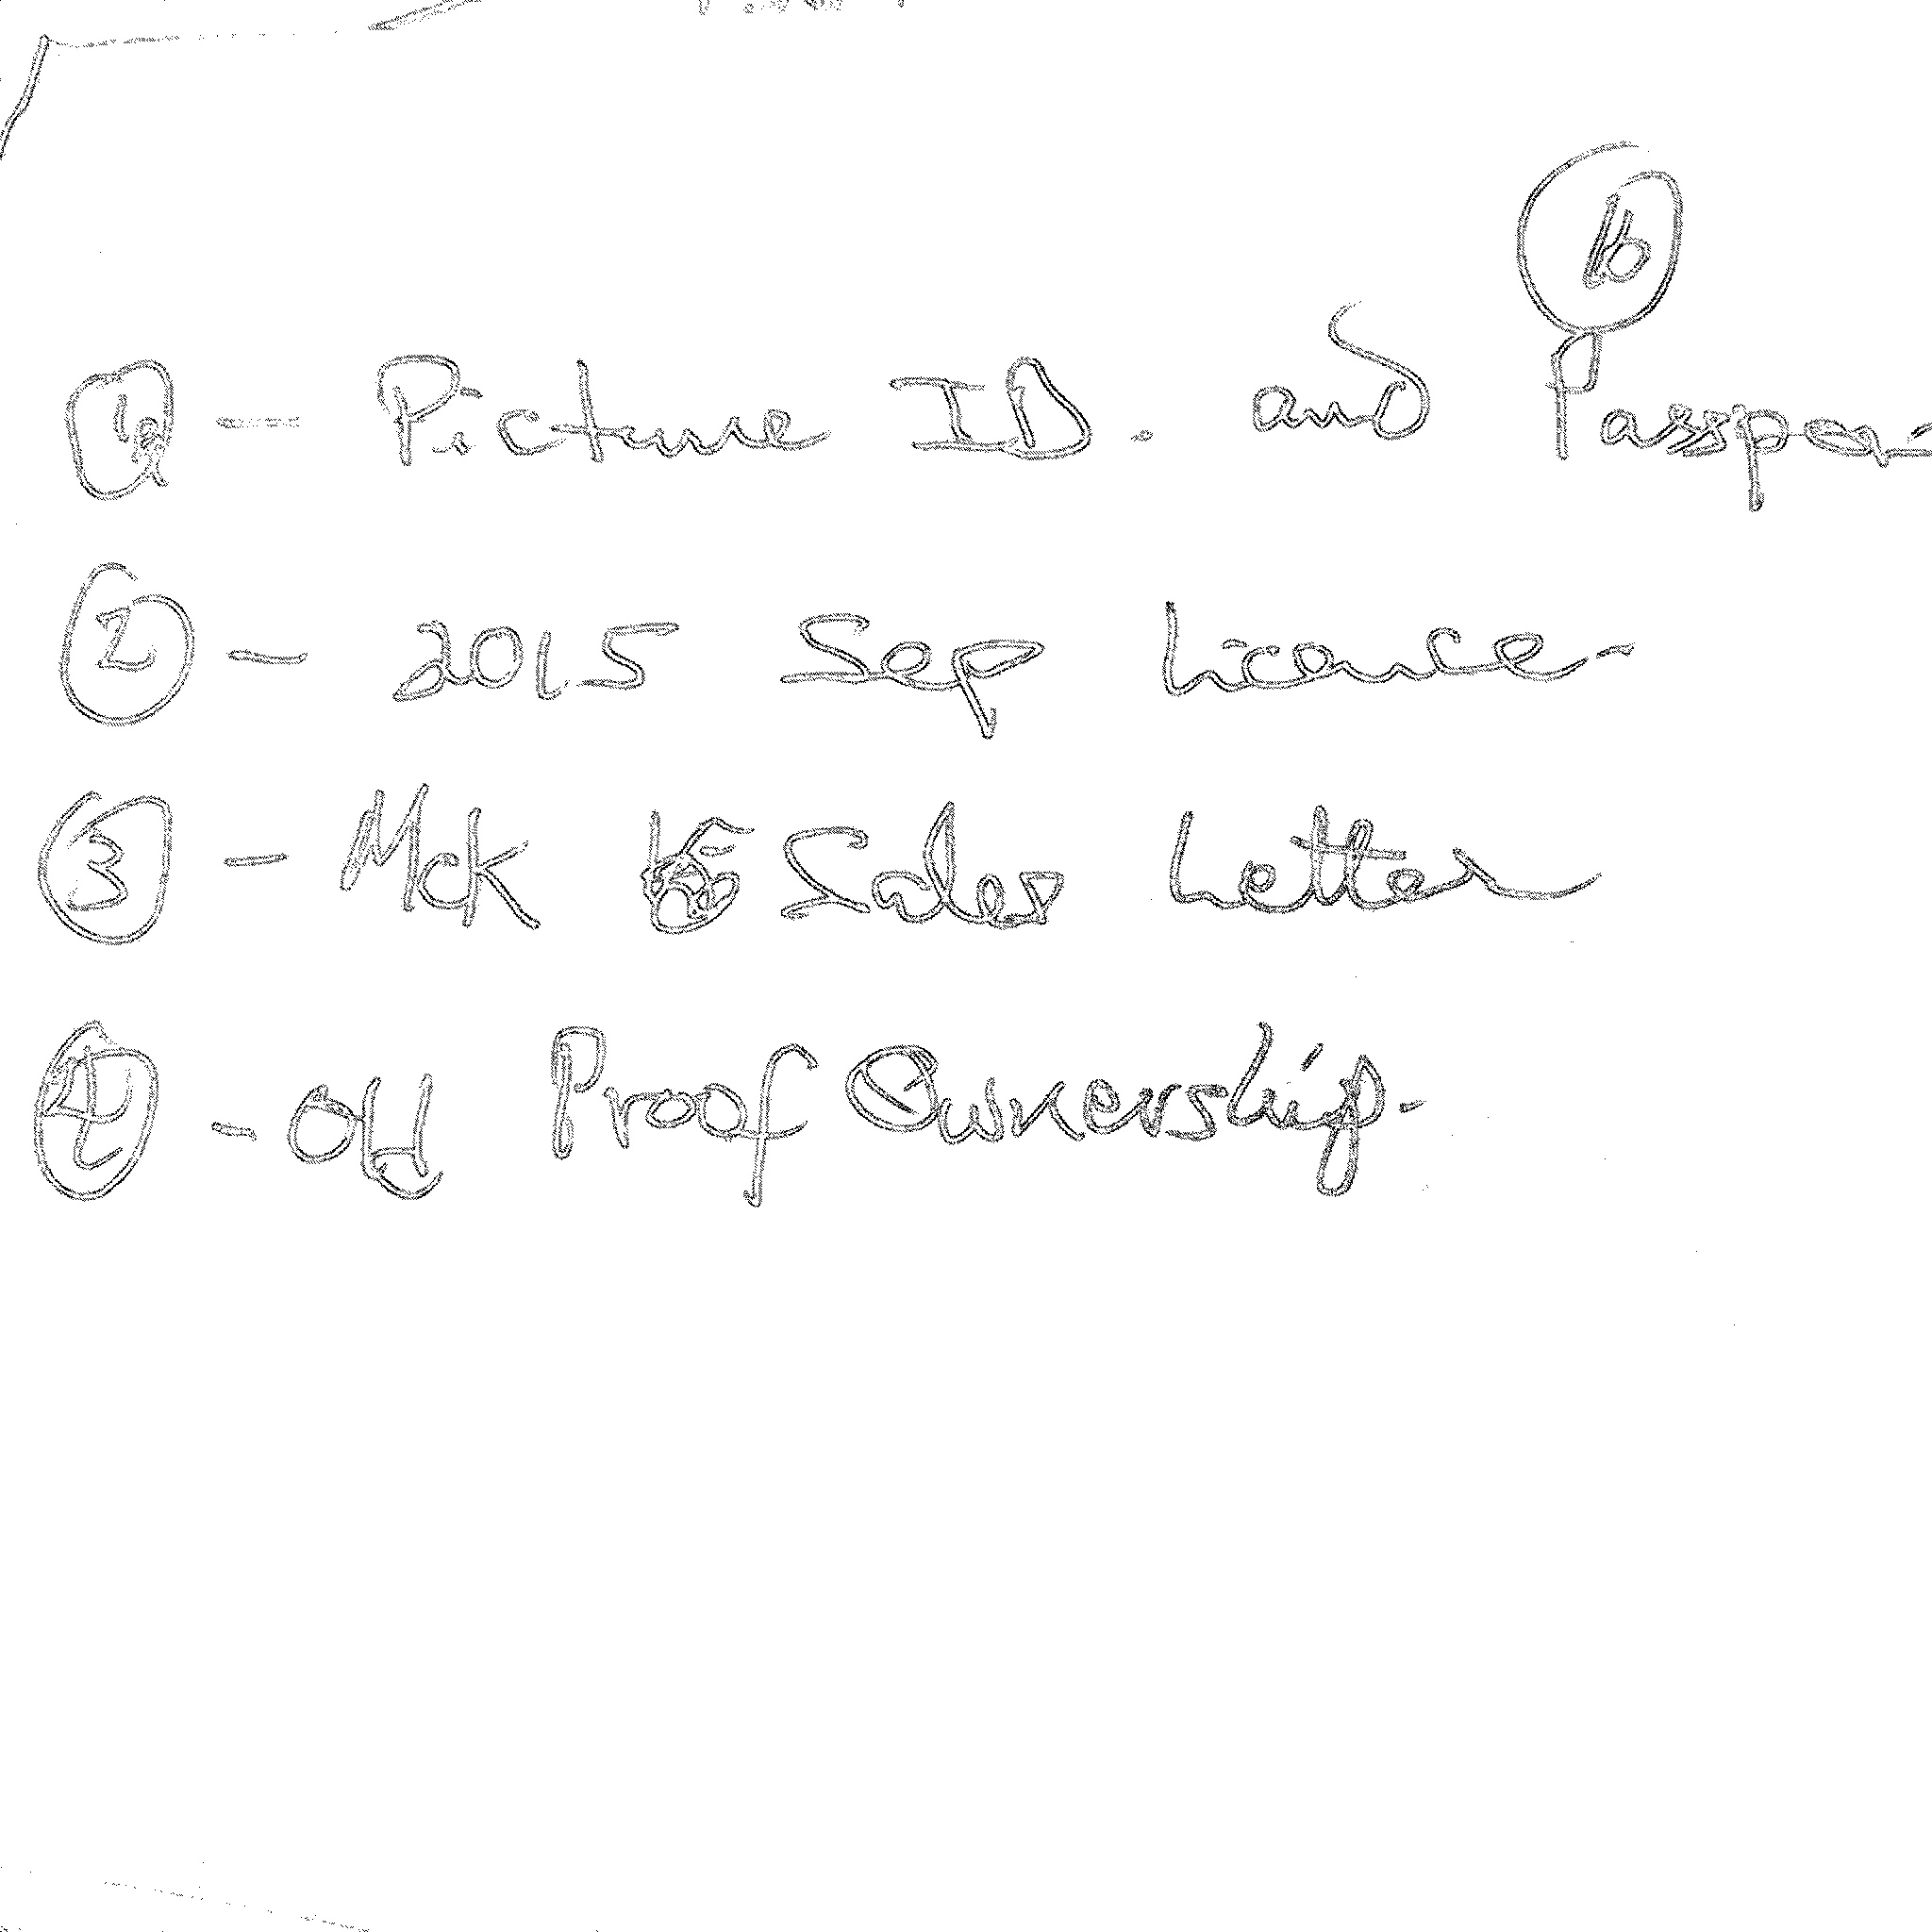 1b
1a — Picture ID. and Passpor
2 — 2015 Sep Licence -
3 — Mck Sales Letter
4 - Old Proof Ownership.